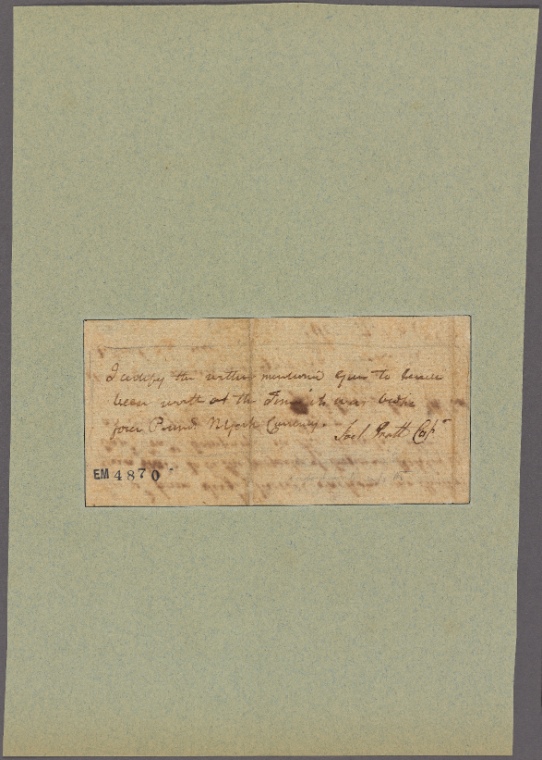 I certify the within mentioned Gun to have
been worth at the Time it was
four Pound NYork Currency.
Joel Pratt Capt
EM 4870